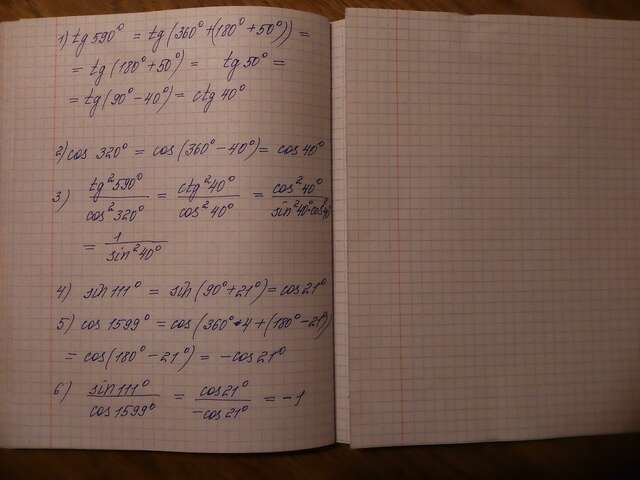 1) tg 590° = tg (360° + (180° + 50°)) =
= tg (180° + 50°) = tg 50° =
= tg (90° - 40°) = ctg 40°
2) cos 320° = cos (360° - 40°) = cos 40°
3) tg² 590° / cos² 320° = ctg² 40° / cos² 40° = cos² 40° / sin² 40° · cos² 40°
= 1 / sin² 40°
4) sin 111° = sin (90° + 21°) = cos 21°
5) cos 1599° = cos (360° · 4 + (180° - 21°))
= cos (180° - 21°) = - cos 21°
6) sin 111° / cos 1599° = cos 21° / - cos 21° = - 1